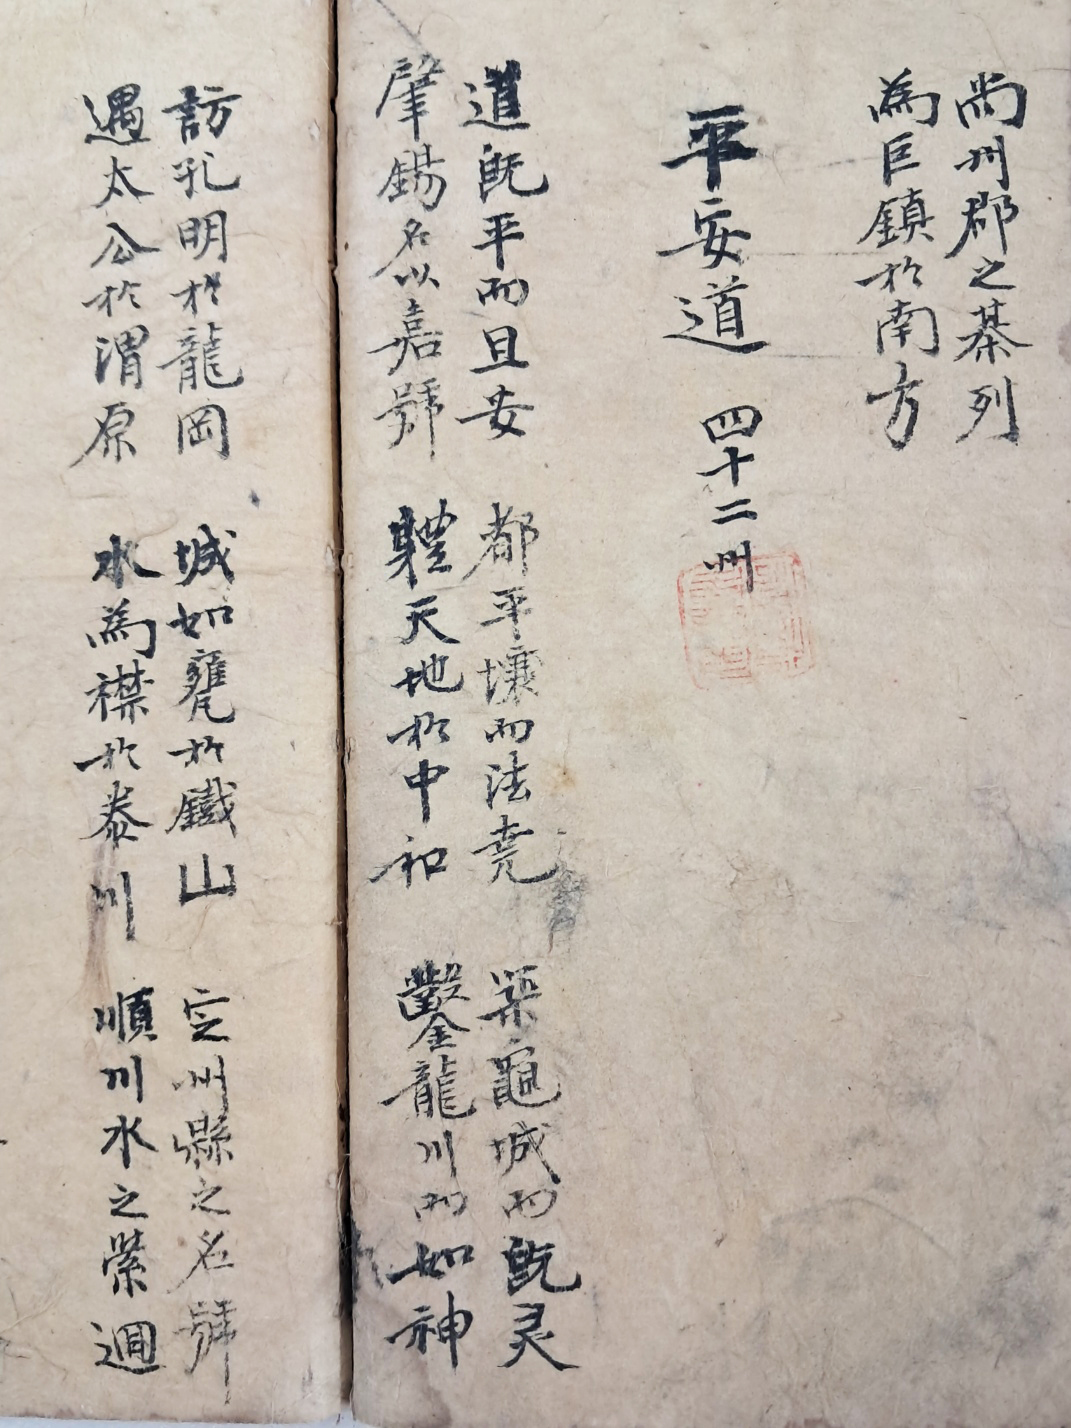 尚州郡之棊列
為巨鎮於南方
平安道 四十二州
道既平而且安 都平壤而法堯 築龜城而既灵
肇錫名以嘉號 軆天地於中和 鑿龍川而如神
訪孔明於龍岡 城如甕於鐵山 定州縣之名號
遇太公於渭原 水為襟於泰川 順川水之縈迴